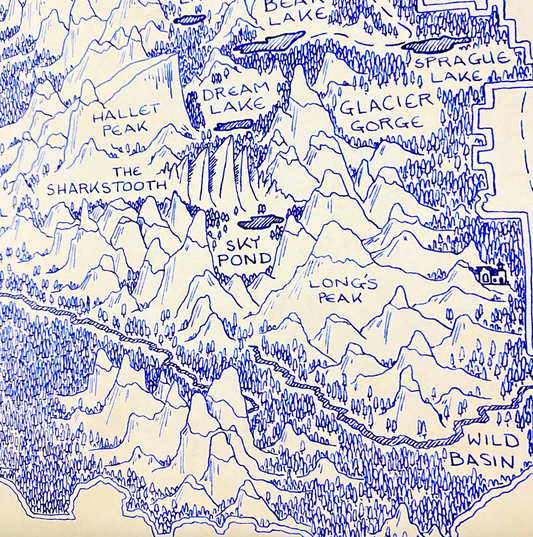 BEAR
LAKE
SPRAGUE
LAKE
DREAM
LAKE
GLACIER
GORGE
HALLET
PEAK
THE
SHARKSTOOTH
SKY
POND
LONG'S
PEAK
WILD
BASIN